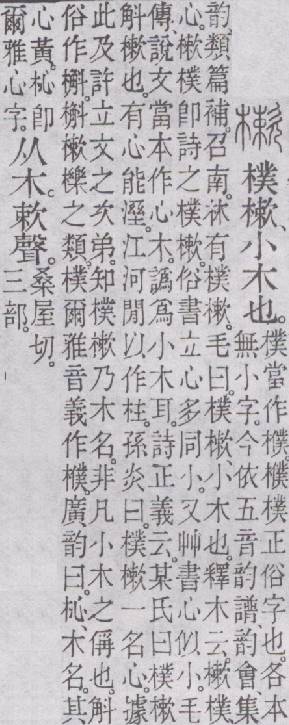 樕
樸樕、小木也。
樸當作㯷。㯷樸正俗字也。各本
無小字。今依五音韵譜、韵會、集
韵類篇補。召南。林有樸樕。毛曰。樸樕、小木也。釋木云。樕樸、
心。樕樸卽詩之樸樕。俗書立心多同小。又艸書心似小。毛
傳、說文當本作心木。譌爲小木耳。詩正義云。某氏曰。樸樕、
斛樕也。有心能溼。江河閒以作柱。孫炎曰。樸樕一名心。據
此及許立文之次弟。知樸樕乃木名。非凡小木之偁也。斛
俗作槲。槲樕櫟之類。樸爾雅音義作㯷。廣韵曰。杺木名。其
心黃。杺卽
爾雅心字。
从木。欶聲。
桑屋切。
三部。